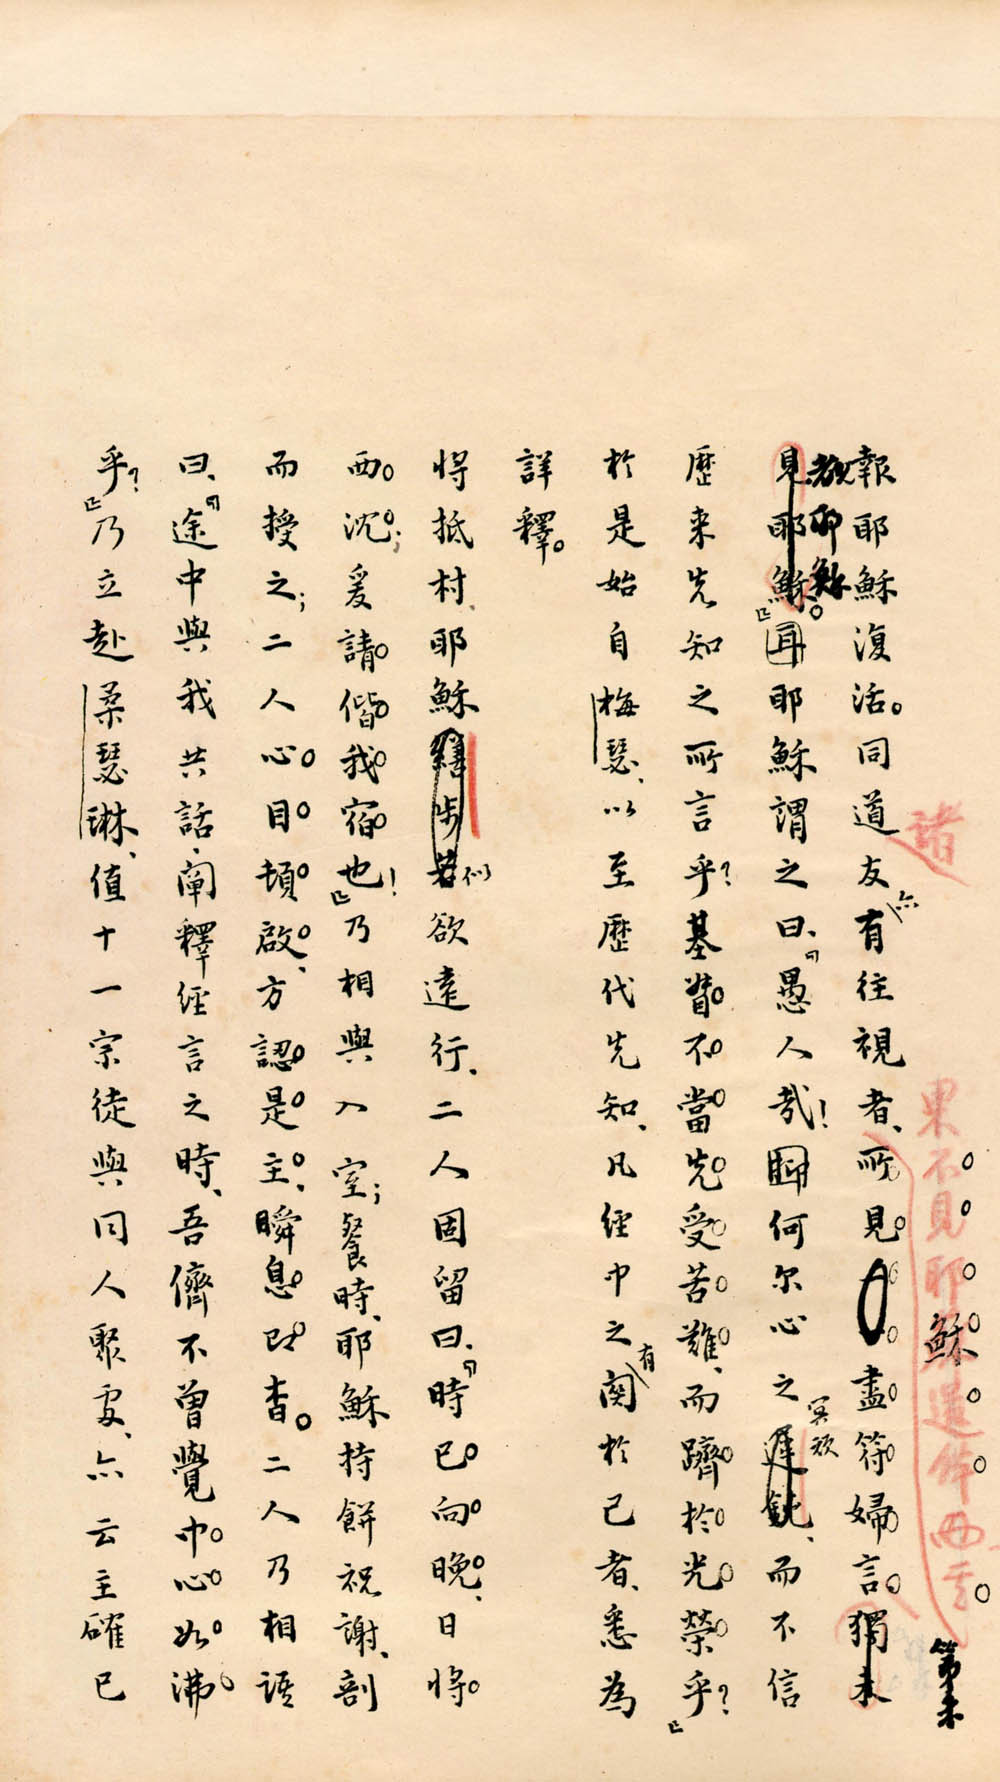 諸
果不見耶穌遺體而云
第未
報耶穌復活。同道友亦有往視者、所見盡符婦言。獨未
覩耶穌
見耶穌。』耶穌謂之曰、『愚人哉!何尔心之遲鈍、而不信
冥頑
歷來先知之所言乎?基督不當先受苦難、而躋於光榮乎?』
於是始自梅瑟、以至歷代先知、凡經中之有關於己者、悉為
詳釋。
將抵村、耶穌若似欲遠行、二人固留曰、『時已向晚、日將
西沈;爰請偕我宿也!』乃相與入室;餐時、耶穌持餅祝謝、剖
而授之;二人心目頓啟、方認是主、瞬息已杳。二人乃相語
曰、『途中與我共話、闡釋經言之時、吾儕不曾覺中心如沸
乎?』乃立赴柔瑟琳、值十一宗徒與同人聚處、亦云主確已